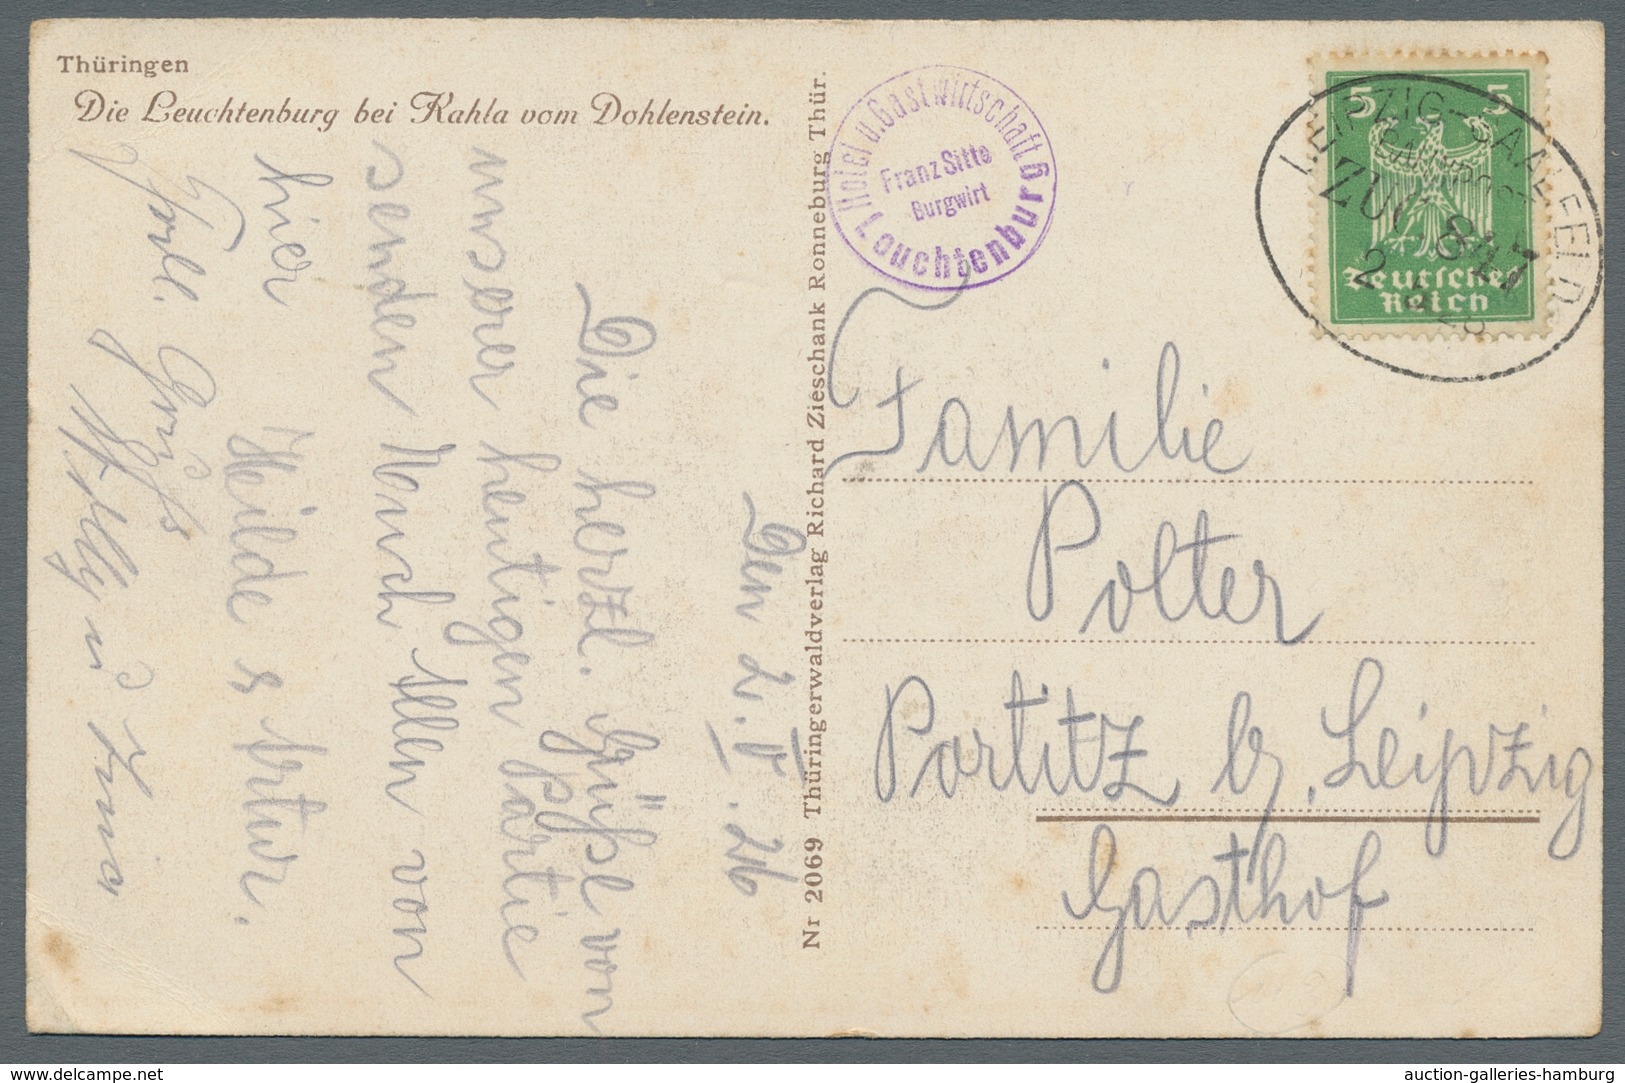 Thüringen
Die Leuchtenburg bei Kahla vom Dohlenstein.
Den 2.V.26
Die herzl. Grüße von
unserer heutigen Partie
senden Euch Allen von
hier Heilde & Artur.
Vorll. Gruß
Willy u
Nr 2069 Thüringerwaldverlag Richard Zieschank Ronneburg Thür.
Hotel u. Gastwirtschaft
Franz Sitte
Burgwirt
Leuchtenburg
LEIPZIG-SAALFELD
BAHNPOST
ZUG 847
2 5 26
5 5
Deutsches
Reich
Familie
Polter
Portitz b. Leipzig
Gasthof
www.delcampe.net
auction-galleries-hamburg